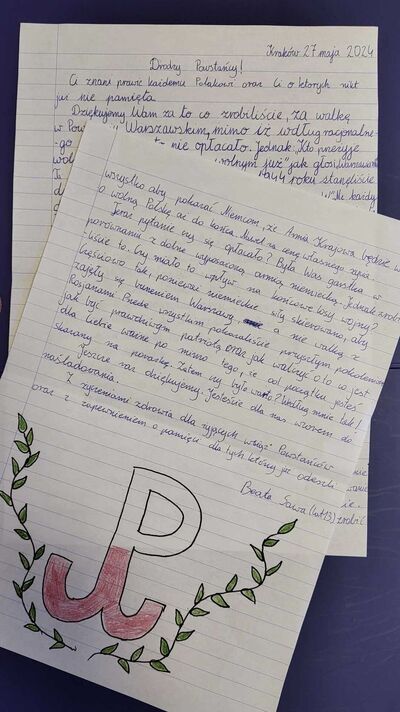 Kraków 27 maja 2024
Drodzy Powstańcy!
Ci znani prawie każdemu Polakowi oraz Ci o których nikt
już nie pamięta
Dziękujemy Wam za to co zrobiliście, za walkę
w Warszawskim, mimo iż według racjonalne-
-go nie opłacało. Jednak "Kto pierzyje
wolnym już" jak głosi
1944 roku stanęliście
każdy
wszystko aby pokazać Niemcom, że Armia Krajowa będzie
o wolną Polskę aż do końca. Nawet za cenę własnego życia
Teraz pytanie czy się opłacało? Była Was garstka w
porównaniu z dobrze wyposażoną armią niemiecką. Jednak zrobi-
-liście to. Czy miało to wpływ na końcowe losy wojny?
Częściowo tak, ponieważ niemieckie siły skierowano, aby
zajęły się burzeniem Warszawy, a nie walką z
Rosjanami. Przede wszystkim pokazaliście przyszłym pokoleniom
jak być prawdziwym patriotą oraz jak walczyć o to co jest
dla Ciebie ważne po mimo tego, że od początku jesteś
skazany na porażkę. Zatem czy było warto? Według mnie tak!
Jeszcze raz dziękujemy. Jesteście dla nas wzorem do
naśladowania.
Z życzeniami zdrowia dla żyjących wciąż Powstańców
oraz z zapewnieniem o pamięci dla tych którzy już odeszli
Beata Sawa (lat 13)
zrobić